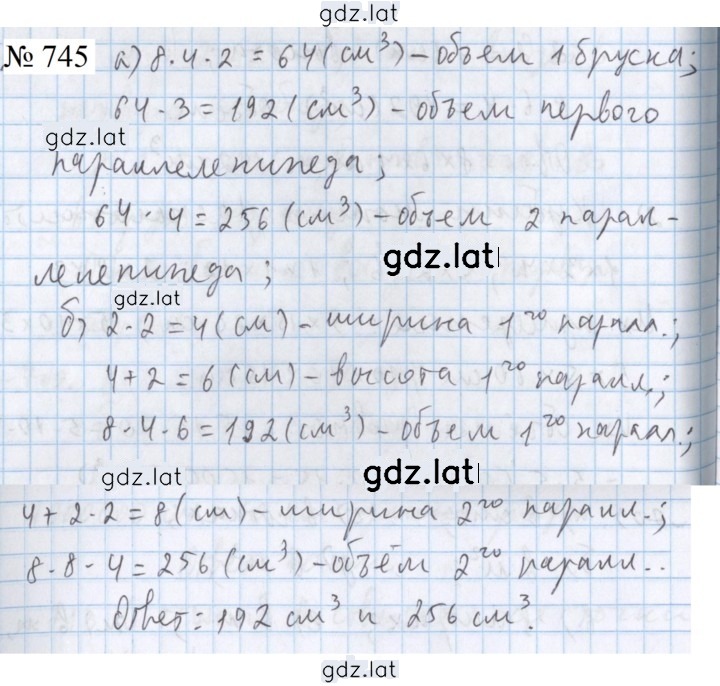 gdz.lat
№ 745 а) 8·4·2 = 64(см³) – объем 1 бруска;
64·3 = 192(см³) – объем первого
gdz.lat
параллелепипеда;
64·4 = 256(см³) – объем 2 парал-
gdz.lat
лелепипеда;
gdz.lat
б) 2·2 = 4(см) – ширина 1го паралл.;
4+2 = 6(см) – высота 1го паралл.;
8·4·6 = 192(см³) – объем 1го паралл.;
gdz.lat gdz.lat
4+2·2 = 8(см) – ширина 2го паралл.;
8·8·4 = 256(см³) – объём 2го паралл..
Ответ: 192 см³ и 256 см³.
gdz.lat